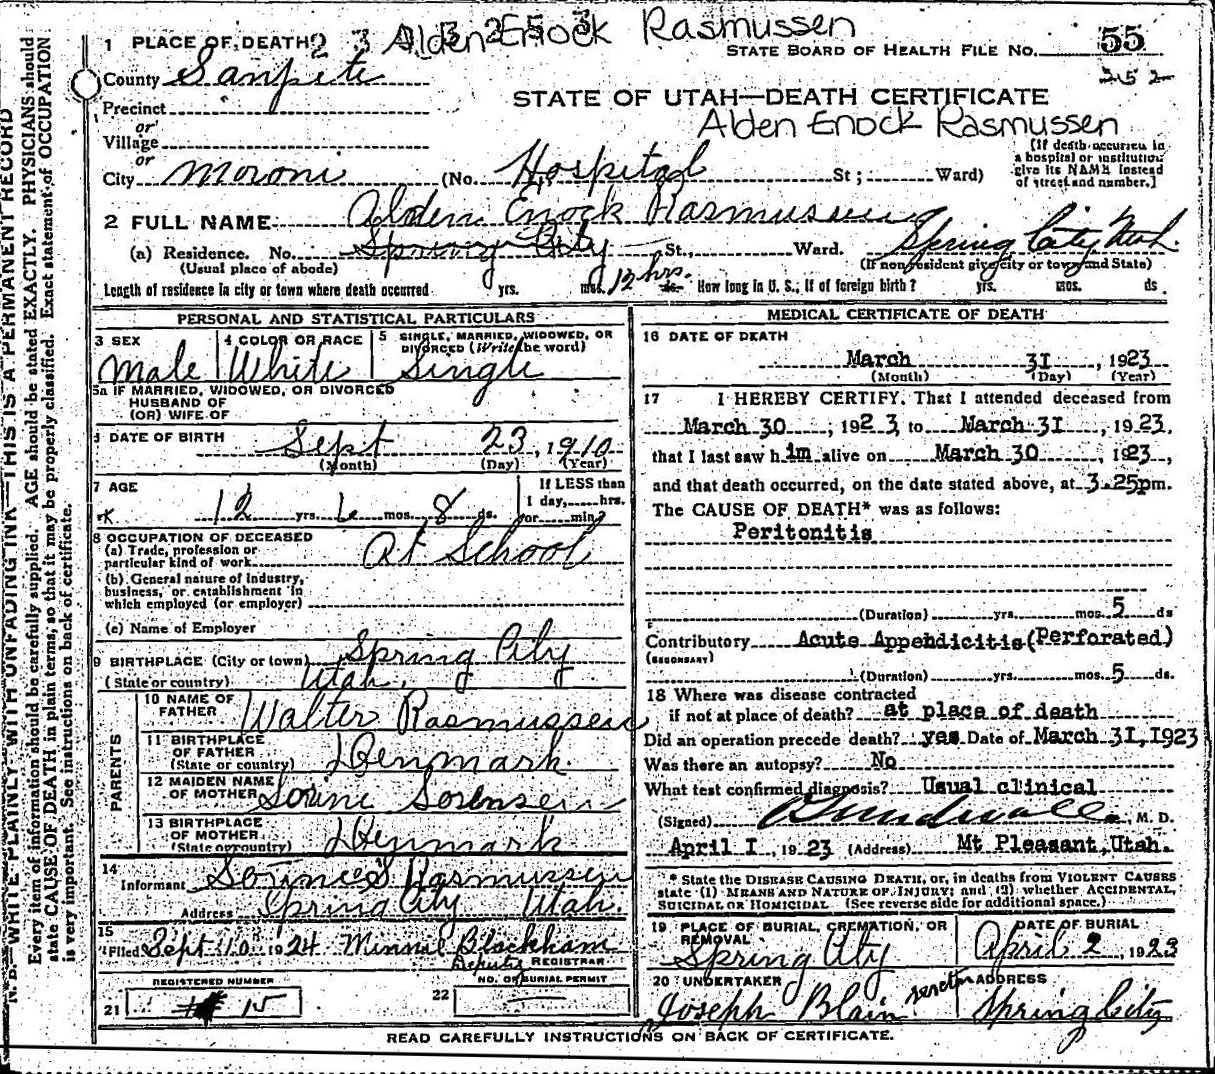 Alden Enock Rasmussen
1 PLACE OF DEATH 2 3 STATE BOARD OF HEALTH FILE NO. 55
County Sanpete 352
Precinct STATE OF UTAH—DEATH CERTIFICATE
or Alden Enock Rasmussen
Village
or
City Moroni (No. Hospital St; Ward) [If death occurred in a hospital or institution give its NAME instead of street and number.]
2 FULL NAME Alden Enock Rasmussen
(a) Residence. No. Spring City St., Ward. Spring City Utah.
(Usual place of abode) (If nonresident give city or town and State)
Length of residence in city or town where death occurred yrs. mos. 12 hrs. ds. How long in U. S., if of foreign birth? yrs. mos. ds
PERSONAL AND STATISTICAL PARTICULARS
3 SEX 4 COLOR OR RACE 5 SINGLE, MARRIED, WIDOWED, OR DIVORCED (Write the word)
Male White Single
5a IF MARRIED, WIDOWED, OR DIVORCED
HUSBAND OF
(OR) WIFE OF
6 DATE OF BIRTH Sept 23, 1910
(Month) (Day) (Year)
7 AGE If LESS than
1 day, hrs.
12 yrs. 6 mos. 8 ds. or min?
8 OCCUPATION OF DECEASED
(a) Trade, profession or
particular kind of work At School
(b) General nature of industry,
business, or establishment in
which employed (or employer)
(c) Name of Employer
9 BIRTHPLACE (City or town) Spring City
(State or country) Utah.
PARENTS
10 NAME OF
FATHER Walter Rasmussen
11 BIRTHPLACE
OF FATHER
(State or country) Denmark.
12 MAIDEN NAME
OF MOTHER Sorine Sorensen
13 BIRTHPLACE
OF MOTHER
(State or country) Denmark
14
Informant Sorine S Rasmussen
Address Spring City Utah.
15
Filed Sept 10 1924 Minnie Blackham
Deputy REGISTRAR
REGISTERED NUMBER NO. OF BURIAL PERMIT
21 # 15 22
MEDICAL CERTIFICATE OF DEATH
16 DATE OF DEATH
March 31, 1923
(Month) (Day) (Year)
17 I HEREBY CERTIFY, That I attended deceased from
March 30, 1923, to March 31, 1923,
that I last saw him alive on March 30, 1923,
and that death occurred, on the date stated above, at 3.25pm.
The CAUSE OF DEATH* was as follows:
Peritonitis
(Duration) yrs. mos. 5 ds
Contributory Acute Appendicitis (Perforated)
(SECONDARY)
(Duration) yrs. mos. 5 ds.
18 Where was disease contracted
if not at place of death? at place of death
Did an operation precede death? yes Date of March 31, 1923
Was there an autopsy? No
What test confirmed diagnosis? Usual clinical
(Signed) , M. D.
April I, 1923 (Address) Mt Pleasant, Utah.
* State the DISEASE CAUSING DEATH, or, in deaths from VIOLENT CAUSES
state (1) MEANS AND NATURE OF INJURY; and (2) whether ACCIDENTAL,
SUICIDAL OR HOMICIDAL (See reverse side for additional space.)
19 PLACE OF BURIAL, CREMATION, OR REMOVAL DATE OF BURIAL
Spring City April 2, 1923
20 UNDERTAKER ADDRESS
Joseph Blain Spring City
READ CAREFULLY INSTRUCTIONS ON BACK OF CERTIFICATE.
N. B.—WRITE PLAINLY WITH UNFADING INK—THIS IS A PERMANENT RECORD
Every item of information should be carefully supplied. AGE should be stated EXACTLY. PHYSICIANS should
state CAUSE OF DEATH in plain terms, so that it may be properly classified. Exact statement of OCCUPATION
is very important. See instructions on back of certificate.